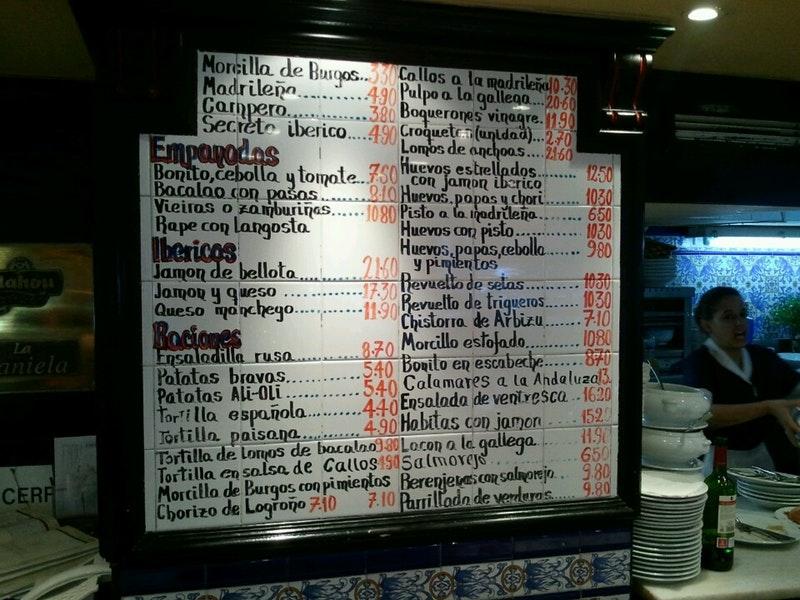 Morcilla de Burgos... 3.30
Madrileña............ 4.90
Campero............ 3.80
Secreto iberico..... 4.90
Empanadas
Bonito, cebolla y tomate... 7.60
Bacalao con pasas...... 8.10
Vieiras o zamburiñas...... 10.80
Rape con langosta
Ibericos
Jamon de bellota ........ 21.60
Jamon y queso ........ 17.30
Queso manchego........ 11.90
Raciones
Ensaladilla rusa ........ 8.70
Patatas bravas........ 5.40
Patatas Ali-Oli ........ 5.40
Tortilla española........ 4.40
Tortilla paisana........ 4.90
Tortilla de Lomos de bacalao 9.80
Tortilla en salsa de Callos 4.90
Morcilla de Burgos con pimientos
Chorizo de Logroño 7.10 7.10
Callos a la madrileña 10.30
Pulpo a la gallega.... 20.60
Boquerones vinagre. 11.90
Croquetas (unidad)... 2.70
Lomos de anchoas... 21.60
Huevos estrellados...... 12.50
con jamon iberico
Huevos, papas y chori 10.30
Pisto a la madrileña..... 6.50
Huevos con pisto........ 10.30
Huevos, papas, cebolla 9.80
y pimientos
Revuelto de setas........ 10.30
Revuelto de trigueros.... 10.30
Chistorra de Arbizu.... 7.10
Morcillo estofado........ 10.80
Bonito en escabeche.... 8.70
Calamares a la Andaluza 13.
Ensalada de ventresca.... 16.20
Habitas con jamon........ 15.20
Lacon a la gallega........ 11.90
Salmorejo........ 6.50
Berenjenas con salmorejo. 9.80
Parrillada de verduras.... 9.80
Mahou
La
aniela
CERF